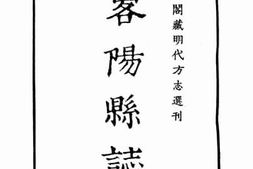 閣藏明代方志選刊
畧陽縣誌